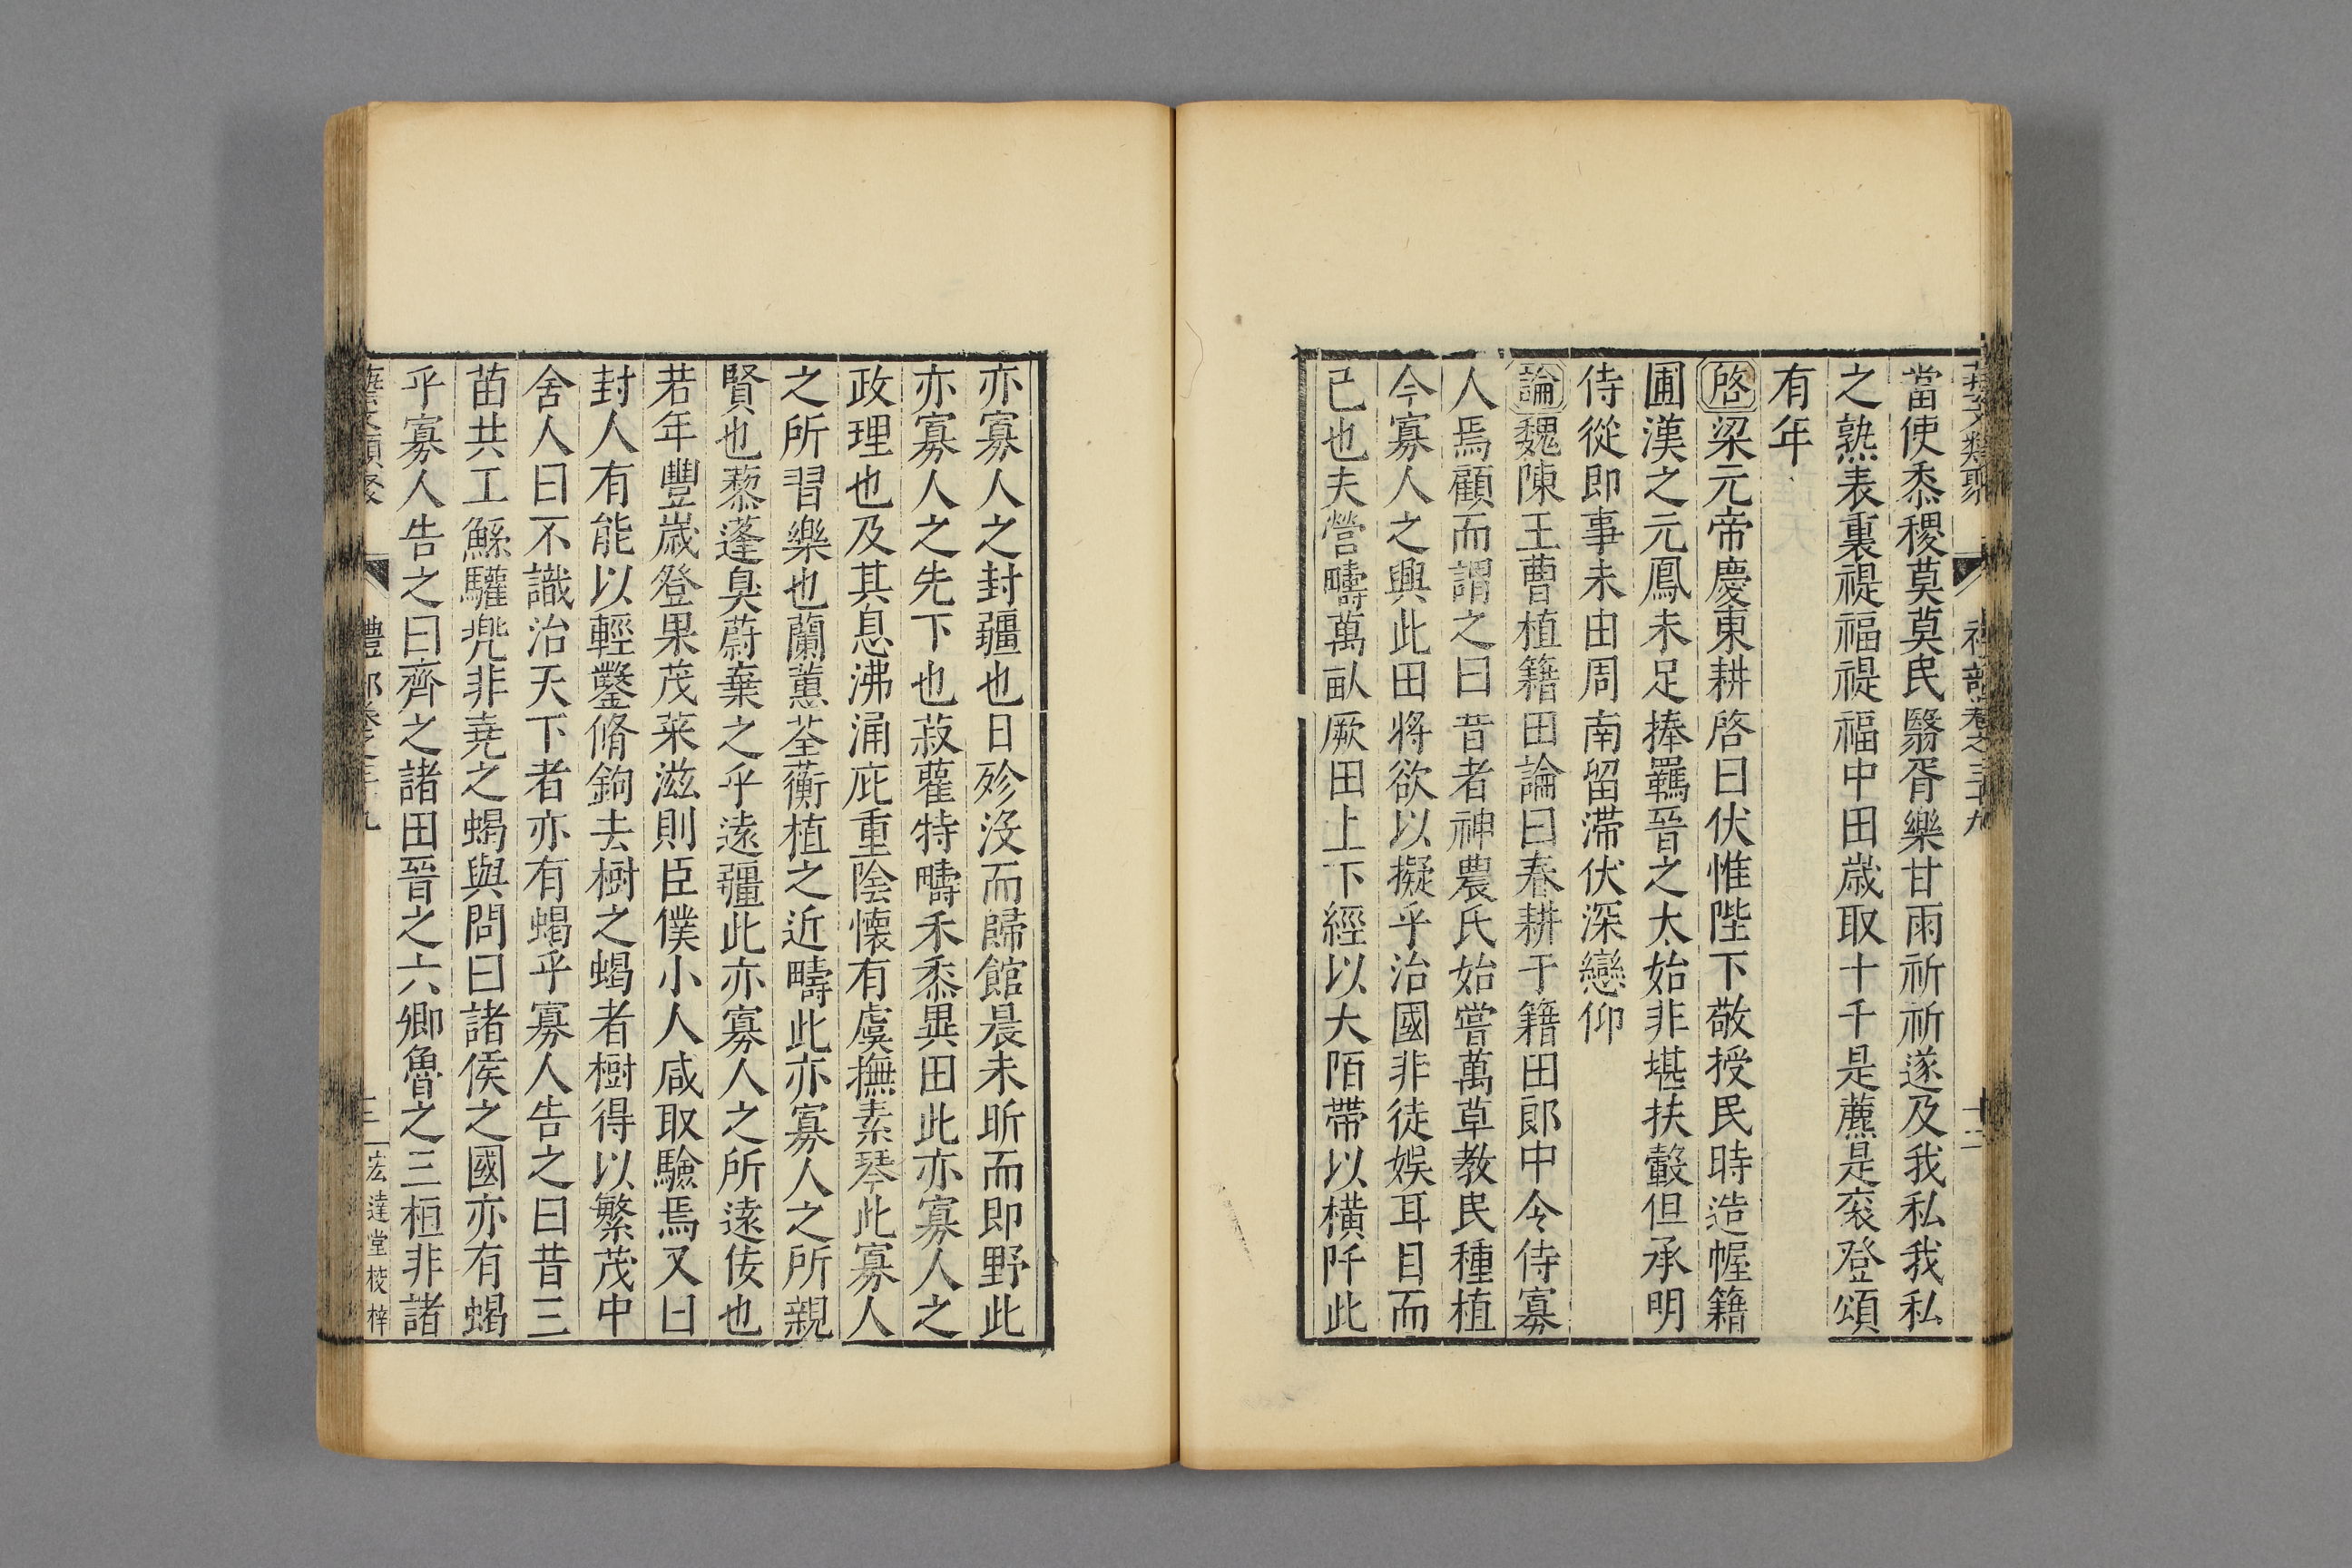 當使黍稷莫莫民翳胥樂甘雨祈祈遂及我私我私
之熟表裏禔福禔福中田歲取十千是藨是衮登頌
有年
啓梁元帝慶東耕啓曰伏惟陛下敬授民時造幄籍
圃漢之元鳳未足捧羈晉之太始非堪扶轂但承明
侍從即事未由周南留滯伏深戀仰
論魏陳王曹植籍田論曰春耕于籍田郎中令侍寡
人焉顧而謂之曰昔者神農氏始嘗萬草教民種植
今寡人之興此田將欲以擬乎治國非徒娛耳目而
已也夫營疇萬畝厥田上下經以大陌帶以橫阡此
亦寡人之封疆也日殄沒而歸館晨未昕而即野此
亦寡人之先下也菽藿特疇禾黍異田此亦寡人之
政理也及其息沸涌庇重陰懷有虞撫素琴此寡人
之所習樂也蘭蕙荃蘅植之近疇此亦寡人之所親
賢也藜蓬臭蔚棄之乎遠疆此亦寡人之所遠佞也
若年豐歲登果茂菜滋則臣僕小人咸取驗焉又曰
封人有能以輕鑿脩鉤去樹之蝎者樹得以繁茂中
舍人曰不識治天下者亦有蝎乎寡人告之曰昔三
苗共工鯀驩兜非堯之蝎與問曰諸侯之國亦有蝎
乎寡人告之曰齊之諸田晉之六卿魯之三桓非諸
宏達堂校梓